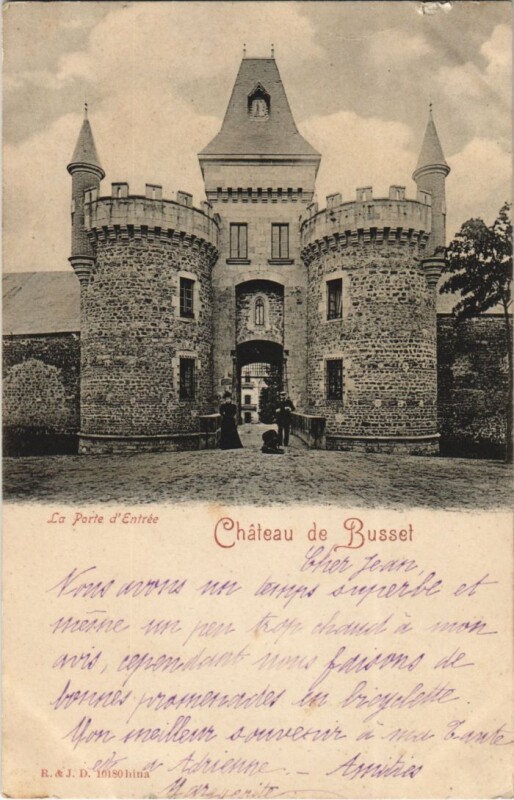 La Porte d'Entrée
Château de Busset
Cher Jean,
Nous avons un temps superbe et
même un peu trop chaud à mon
avis, cependant nous faisons de
bonnes promenades en bicyclette.
Mon meilleur souvenir à ma Tante
et à Adrienne. — Amitiés
Marguerite
R. & J. D. 10180 bina